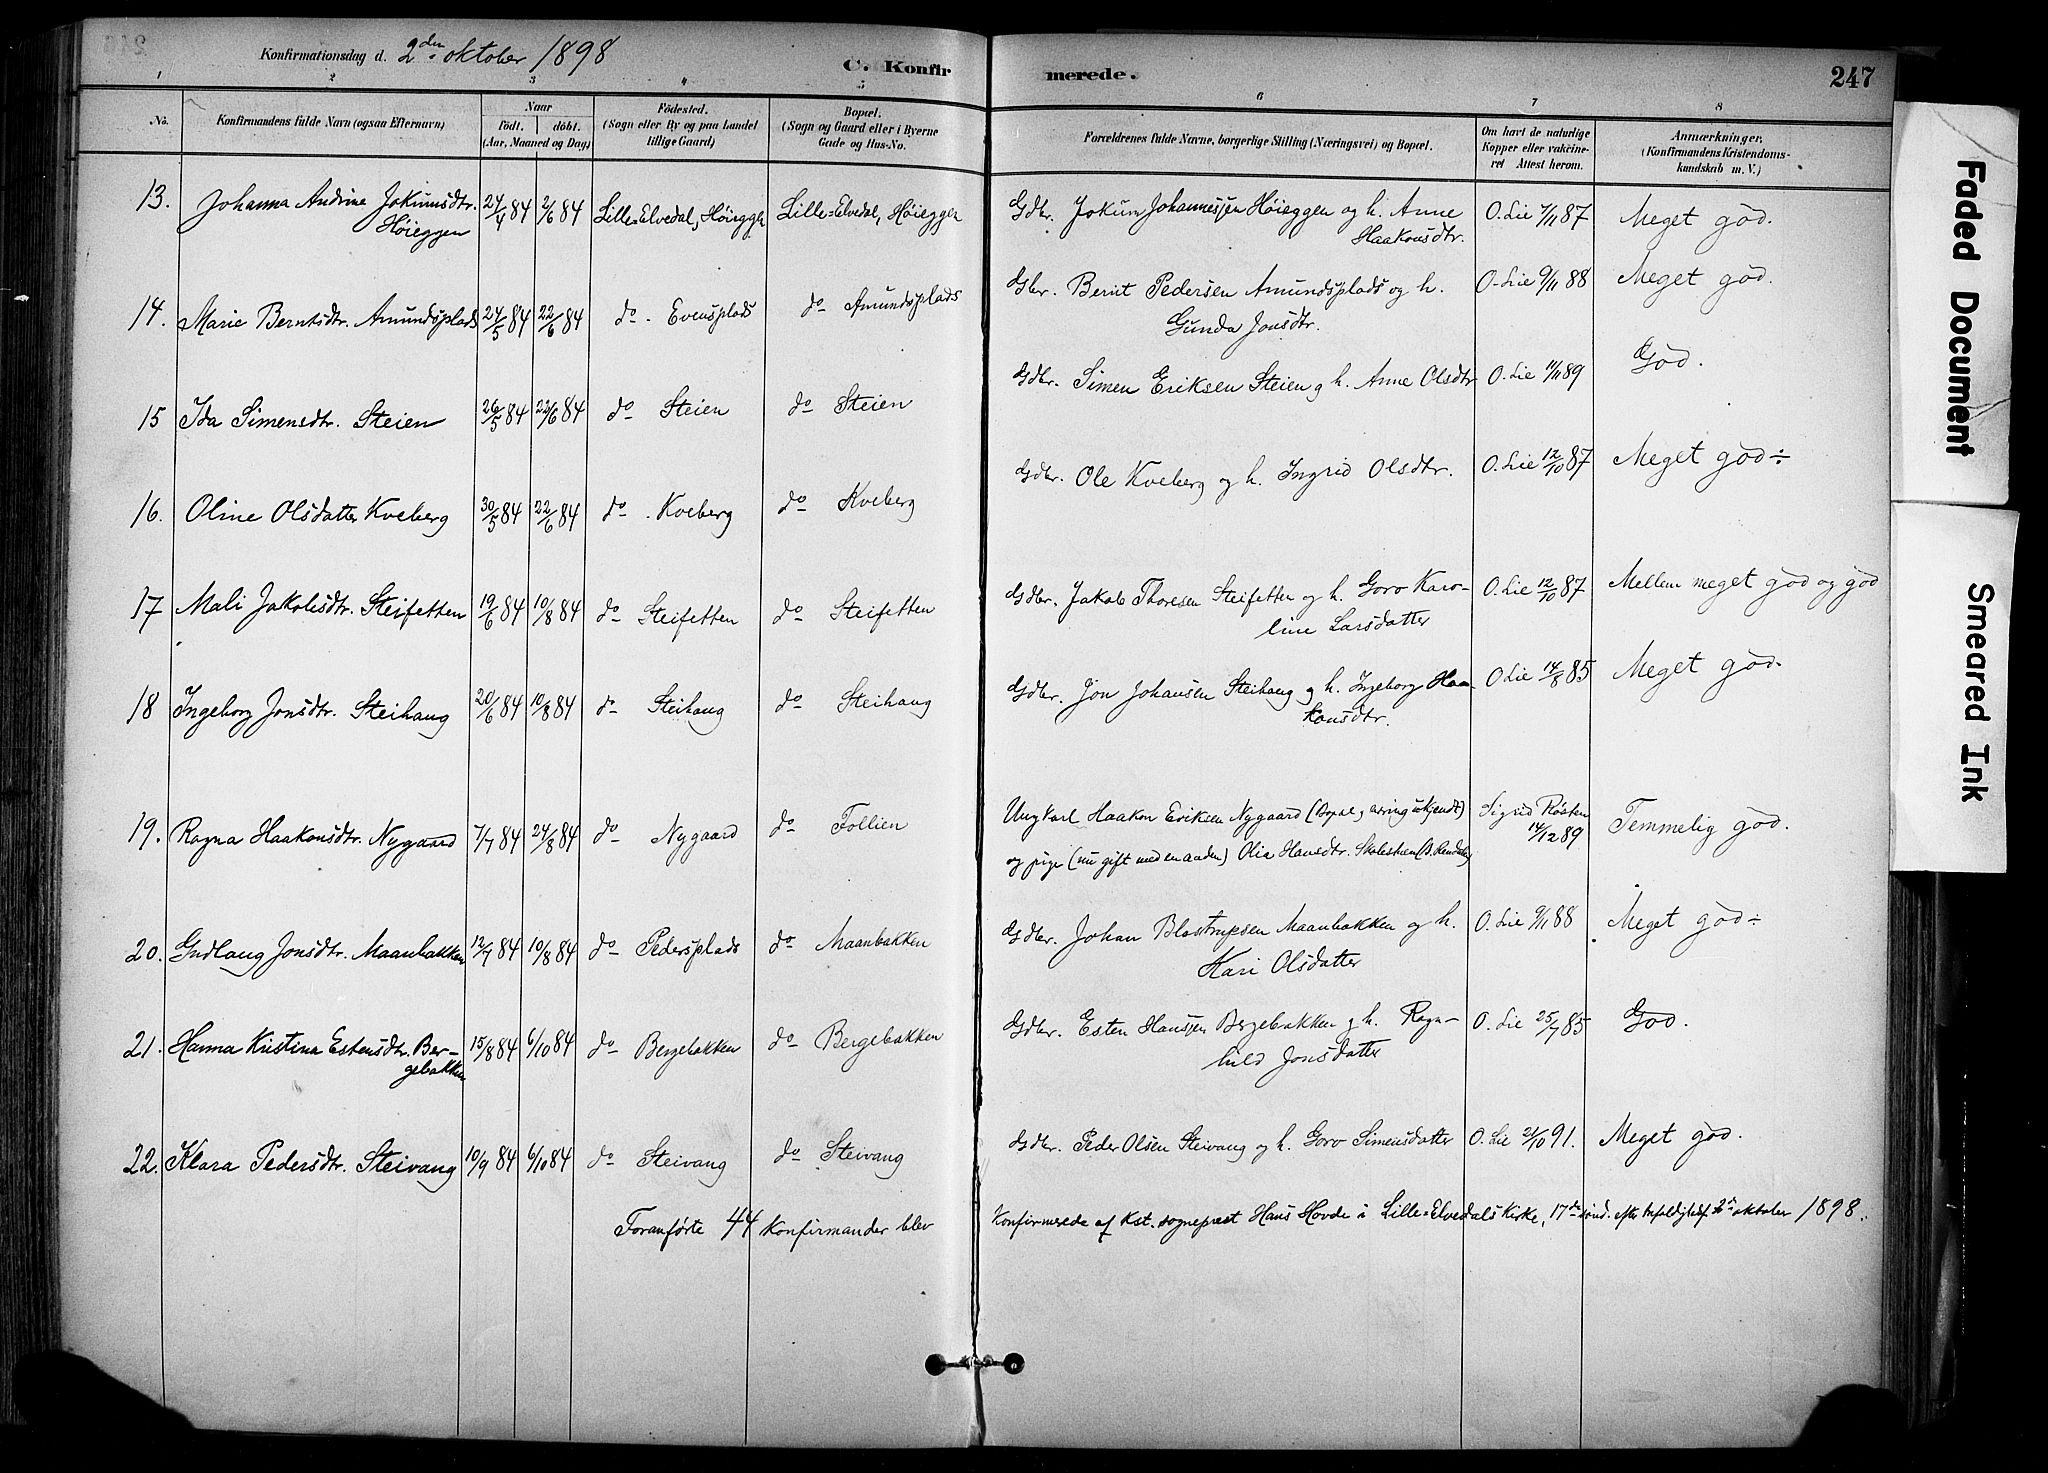 Konfirmationsdag d. 2den oktober 1898
C. Konfirmerede.
247
1 2 3 4 5 6 7 8
No. Konfirmandens fulde Navn (ogsaa Efternavn) Naar født. døbt. (Aar, Maaned og Dag) Fødested. (Sogn eller By og paa Landet tillige Gaard) Bopæl. (Sogn og Gaard eller i Byerne Gade og Hus-No. Forældrenes fulde Navne, borgerlige Stilling (Næringsvei) og Bopæl. Om havt de naturlige Kopper eller vakcineret Attest herom. Anmærkninger. (Konfirmandens Kristendomskundskab m. V.)
13. Johanna Andrine Jokumsdtr. Høieggen 24/4 84 2/6 84 Lille-Elvedal, Høieggen Lille-Elvedal, Høieggen Gdbr. Jokum Johannessen Høieggen og h. Anne Haakonsdtr. O. Lie 7/11 87 Meget god.
14. Marie Berntsdtr. Amundsplads 24/5 84 22/6 84 do. Evensplads do Amundsplads Gbr. Bernt Pedersen Amundsplads og h. Gunda Jonsdtr. O. Lie 9/11 88 Meget god.
15 Ida Simensdtr. Steien 26/5 84 22/6 84 do Steien do Steien Gdbr. Simen Eriksen Steien og h. Anne Olsdtr O. Lie 11/11 89 God.
16. Oline Olsdatter Kveberg 30/5 84 22/6 84 do. Kveberg do Kveberg Gdbr. Ole Kveberg og h. Ingrid Olsdtr. O. Lie 12/10 87 Meget god÷
17 Mali Jakobsdtr. Steifetten 19/6 84 10/8 84 do Steifetten do Steifetten Gdbr. Jakob Thoresen Steifetten og h. Goro Karoline Larsdatter O. Lie 12/10 87 Mellem meget god og god
18 Ingeborg Jonsdtr. Steihaug 20/6 84 10/8 84 do Steihaug do Steihaug Gdbr. Jon Johansen Steihaug og h. Ingeborg Haakonsdtr. O Lie 14/8 85 Meget god.
19. Ragna Haakonsdtr. Nygaard 7/7 84 24/8 84 do Nygaard do Follien Ungkarl Haakon Eriksen Nygaard (Bopæl, næring ukjendt) og pige (nu gift med en anden) Olia Hansdtr. Sigrid Røsten 14/12 89 Temmelig god.
20. Gudlaug Jonsdtr. Maanbakken 12/7 84 10/8 84 do Pedersplads do Maanbakken Gdbr. Johan Blostrupsen Maanbakken og h. Kari Olsdatter O. Lie 9/11 88 Meget god÷
21. Hanna Kristina Estensdtr. Bergebakken 15/8 84 6/10 84 do Bergebakken do Bergebakken Gdbr. Esten Hanssen Bergebakken og h. Ragnhild Jonsdatter O. Lie 25/7 85 God.
22. Klara Pedersdtr. Steivang 10/9 84 6/10 84 do Steivang do Steivang Gdbr. Peder Olsen Steivang og h. Goro Simensdatter O. Lie 21/10 91. Meget god.
Foranførte 44 konfirmander blev konfirmerede af Kst. sognepræst Hans Hovde i Lille-Elvedals Kirke, 17de sønd. efter 2den oktober 1898.
Faded Document
Smeared Ink